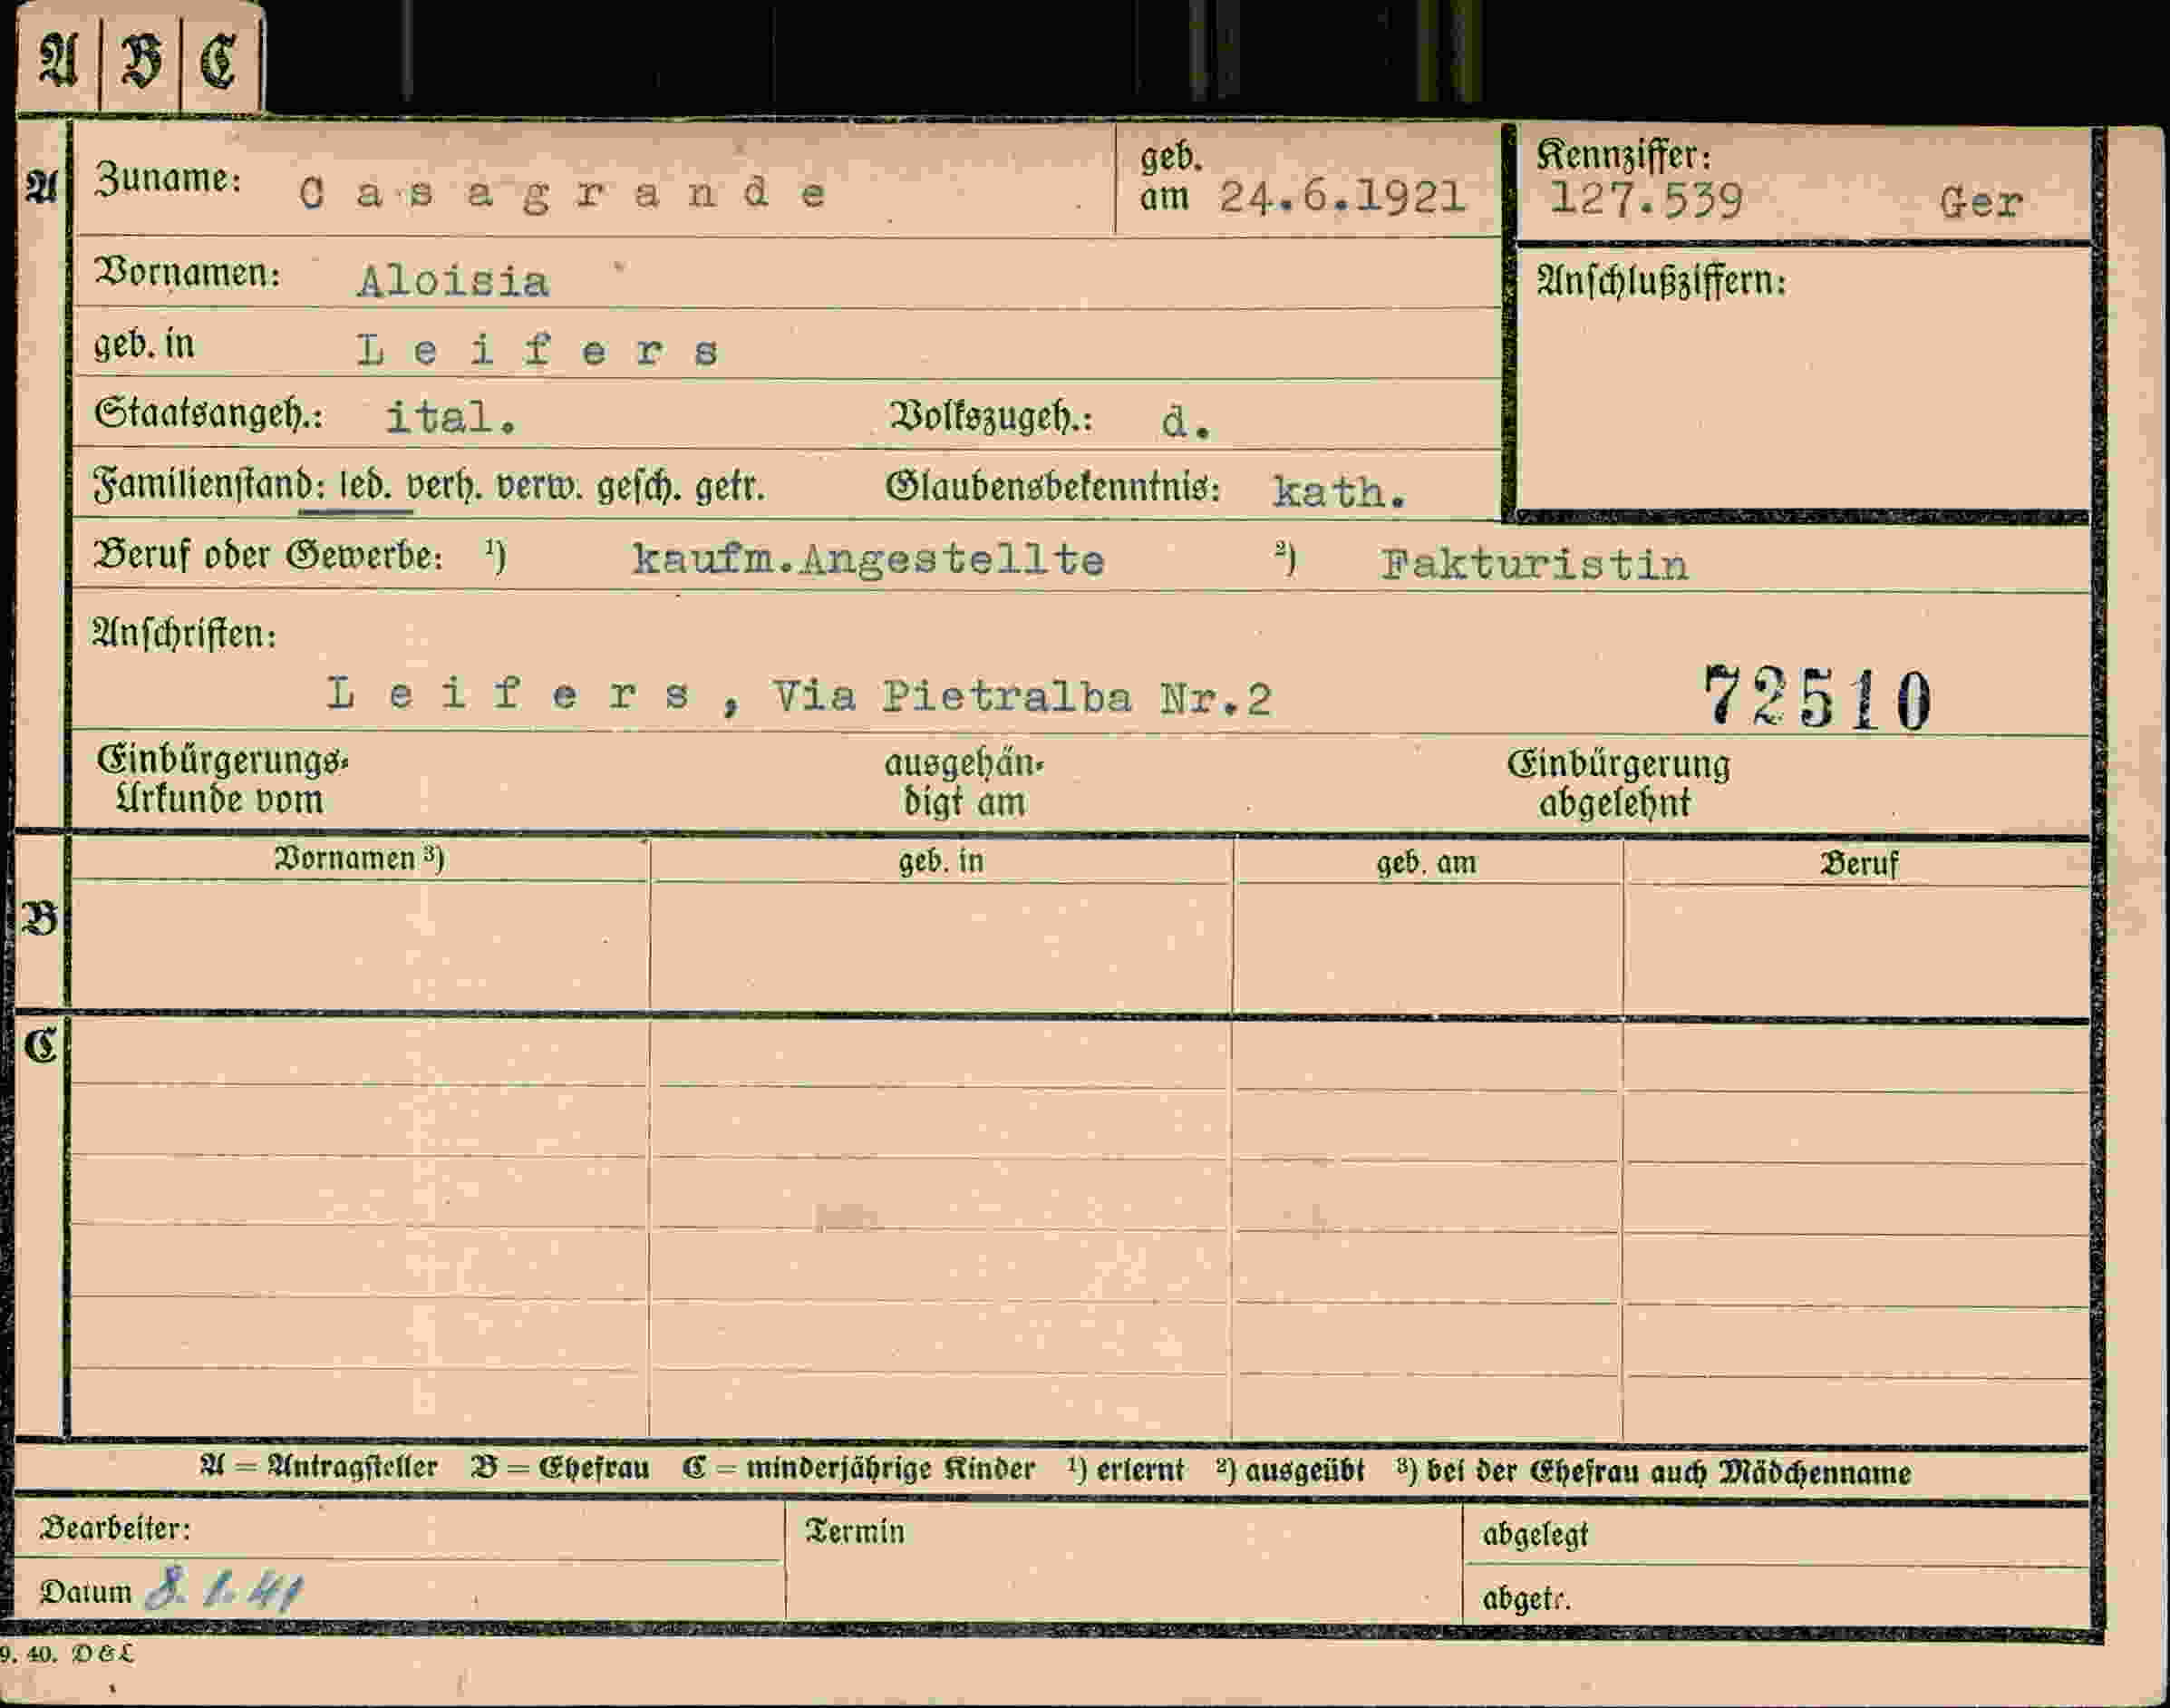 A B C
A Zuname: C a s a g r a n d e geb. am 24.6.1921 Kennziffer: 127.539 Ger
Vornamen: Aloisia Anschlußziffern:
geb. in L e i f e r s
Staatsangeh.: ital. Volkszugeh.: d.
Familienstand: led. verh. verw. gesch. getr. Glaubensbekenntnis: kath.
Beruf oder Gewerbe: ¹) kaufm.Angestellte ²) Fakturistin
Anschriften:
L e i f e r s , Via Pietralba Nr.2 72510
Einbürgerungs- ausgehän- Einbürgerung
Urkunde vom digt am abgelehnt
Vornamen ³) geb. in geb. am Beruf
B
C
A = Antragsteller B = Ehefrau C = minderjährige Kinder ¹) erlernt ²) ausgeübt ³) bei der Ehefrau auch Mädchenname
Bearbeiter: Termin abgelegt
Datum 8. 1. 41 abgetr.
9. 40. D & L